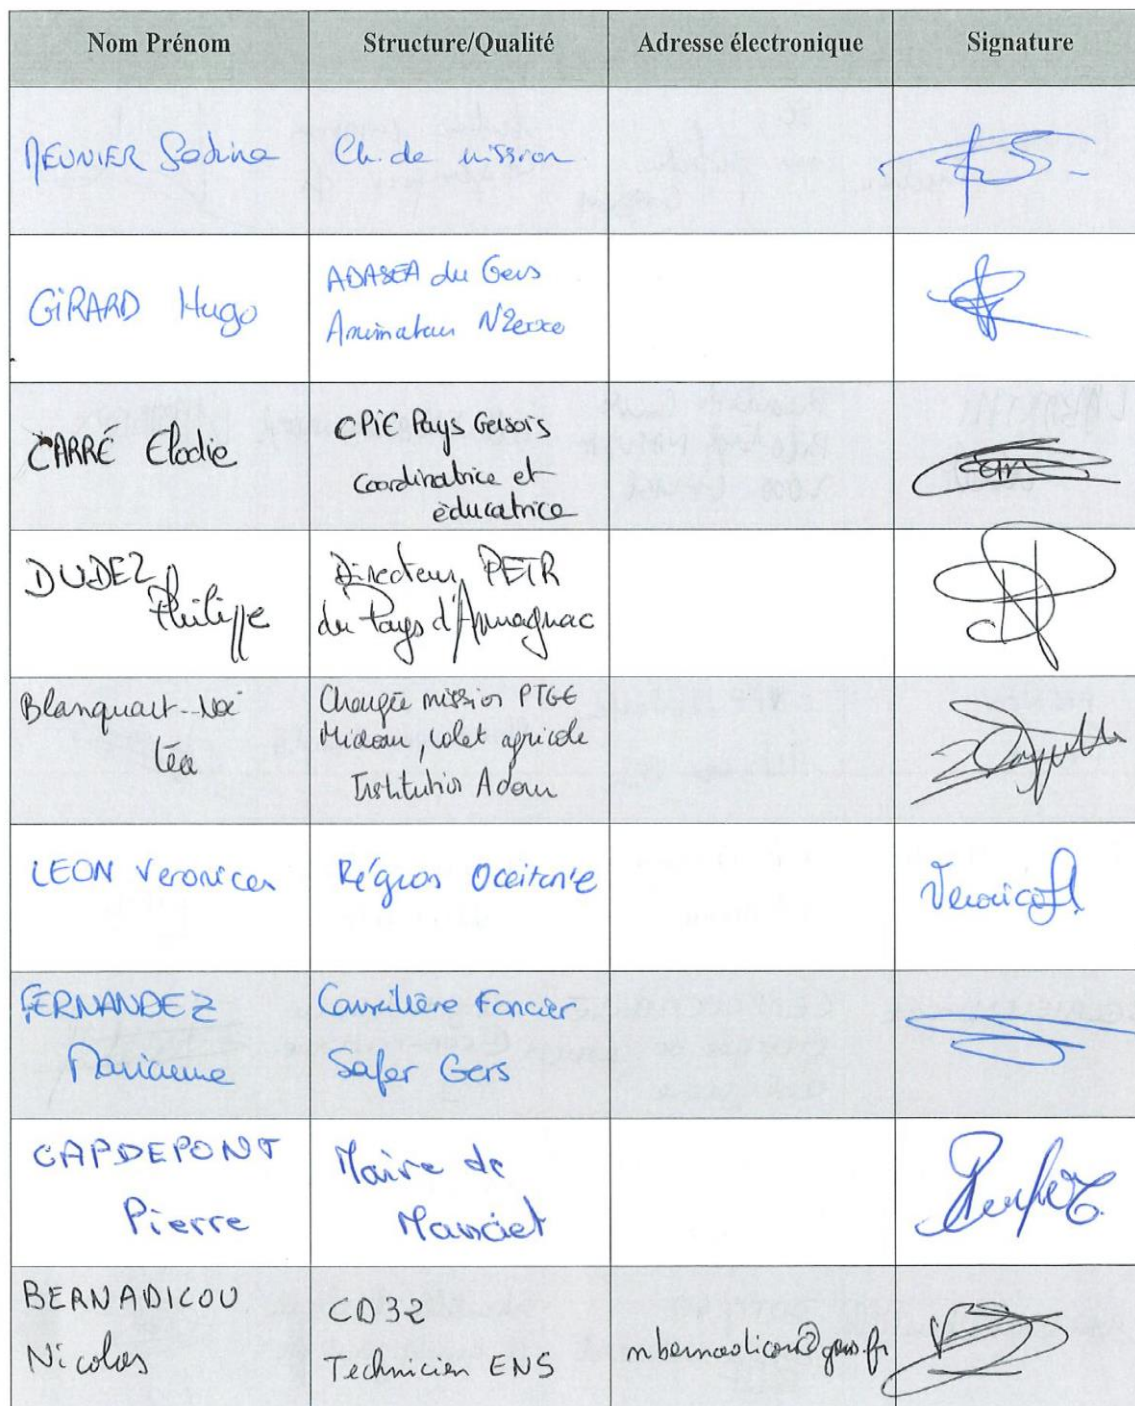 Nom Prénom Structure/Qualité Adresse électronique Signature
MEUNIER Sabine Ch. de mission
GIRARD Hugo
ADASEA du Gers
Animateur N2000
CARRÉ Elodie
CPIE Pays Gersois
Coordinatrice et
éducatrice
DUDEZ
Philippe
Directeur PETR
du Pays d'Armagnac
Blanquart
Léa
Chargée mission PTGE
Midour, volet agricole
Institution Adour
LEON Veronica Région Occitanie
Veronica
FERNANDEZ
Marianne
Conseillère Foncier
Safer Gers
CAPDEPONT
Pierre
Maire de
Manciet
BERNADICOU
Nicolas
CD32
Technicien ENS
nbernadicou@gers.fr